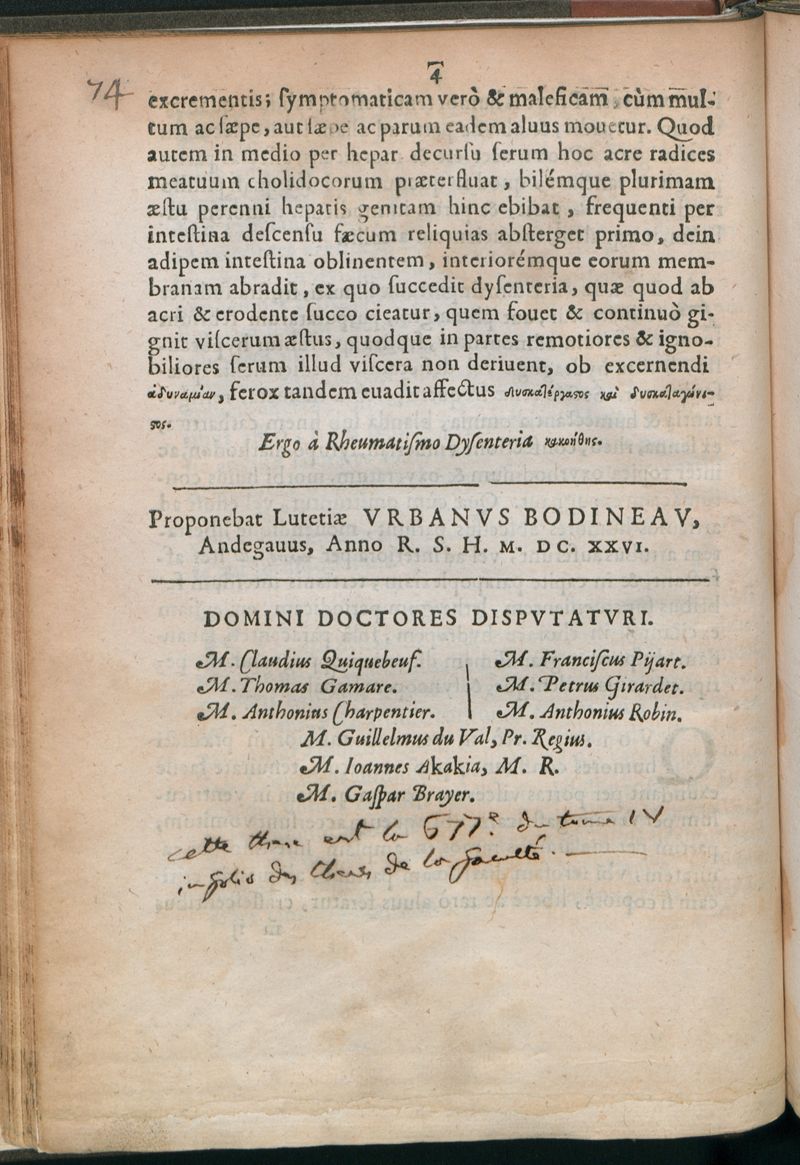 74
4
excrementis; ſymptomaticam verò & maleficam, cùm mul-
tum ac ſæpe, aut ſæpe ac parum eadem aluus mouetur. Quod
autem in medio per hepar decurſu ſerum hoc acre radices
meatuum cholidocorum præterfluat, bilémque plurimam
æſtu perenni hepatis genitam hinc ebibat, frequenti per
inteſtina deſcenſu fæcum reliquias abſterget primo, dein
adipem inteſtina oblinentem, interiorémque eorum mem-
branam abradit, ex quo ſuccedit dyſenteria, quæ quod ab
acri & erodente ſucco cieatur, quem fouet & continuò gi-
gnit viſcerum æſtus, quodque in partes remotiores & igno-
biliores ſerum illud viſcera non deriuent, ob excernendi
ἀδυναμίαν, ferox tandem euadit affectus δυσκατέργαστος καὶ δυσκαταγώνι-
στος.
Ergo à Rheumatiſmo Dyſenteria κακοήθης.
Proponebat Lutetiæ VRBANVS BODINEAV,
Andegauus, Anno R. S. H. M. DC. XXVI.
DOMINI DOCTORES DISPVTATVRI.
M. Claudius Quiquebeuf.
M. Thomas Gamare.
M. Anthonius Charpentier.
M. Franciſcus Pijart.
M. Petrus Girardet.
M. Anthonius Robin.
M. Guillelmus du Val, Pr. Regius.
M. Ioannes Akakia, M. R.
M. Gaſpar Brayer.
cette these est la 677e. du tome IV
in folio des theses de la faculté.